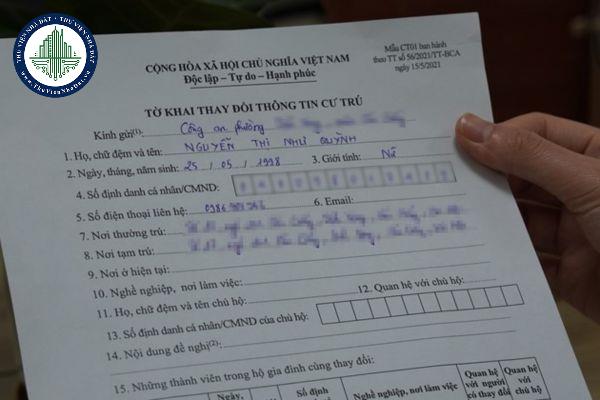 THƯ VIỆN NHÀ ĐẤT
www.ThuVienNhaDat.vn
CỘNG HÒA XÃ HỘI CHỦ NGHĨA VIỆT NAM
Độc lập – Tự do – Hạnh phúc
Mẫu CT01 ban hành
theo TT số 56/2021/TT-BCA
ngày 15/5/2021
TỜ KHAI THAY ĐỔI THÔNG TIN CƯ TRÚ
Kính gửi(1): Công an phường
1. Họ, chữ đệm và tên: NGUYỄN THỊ NHƯ QUỲNH
2. Ngày, tháng, năm sinh: 25 / 05 / 1998 3. Giới tính: Nữ
4. Số định danh cá nhân/CMND:
5. Số điện thoại liên hệ: 6. Email:
7. Nơi thường trú:
8. Nơi tạm trú:
9. Nơi ở hiện tại:
10. Nghề nghiệp, nơi làm việc:
11. Họ, chữ đệm và tên chủ hộ: 12. Quan hệ với chủ hộ:
13. Số định danh cá nhân/CMND của chủ hộ:
14. Nội dung đề nghị(2):
15. Những thành viên trong hộ gia đình cùng thay đổi:
Ngày, Số định Nghề nghiệp, nơi làm việc Quan hệ với người có thay đổi Quan hệ với chủ hộ